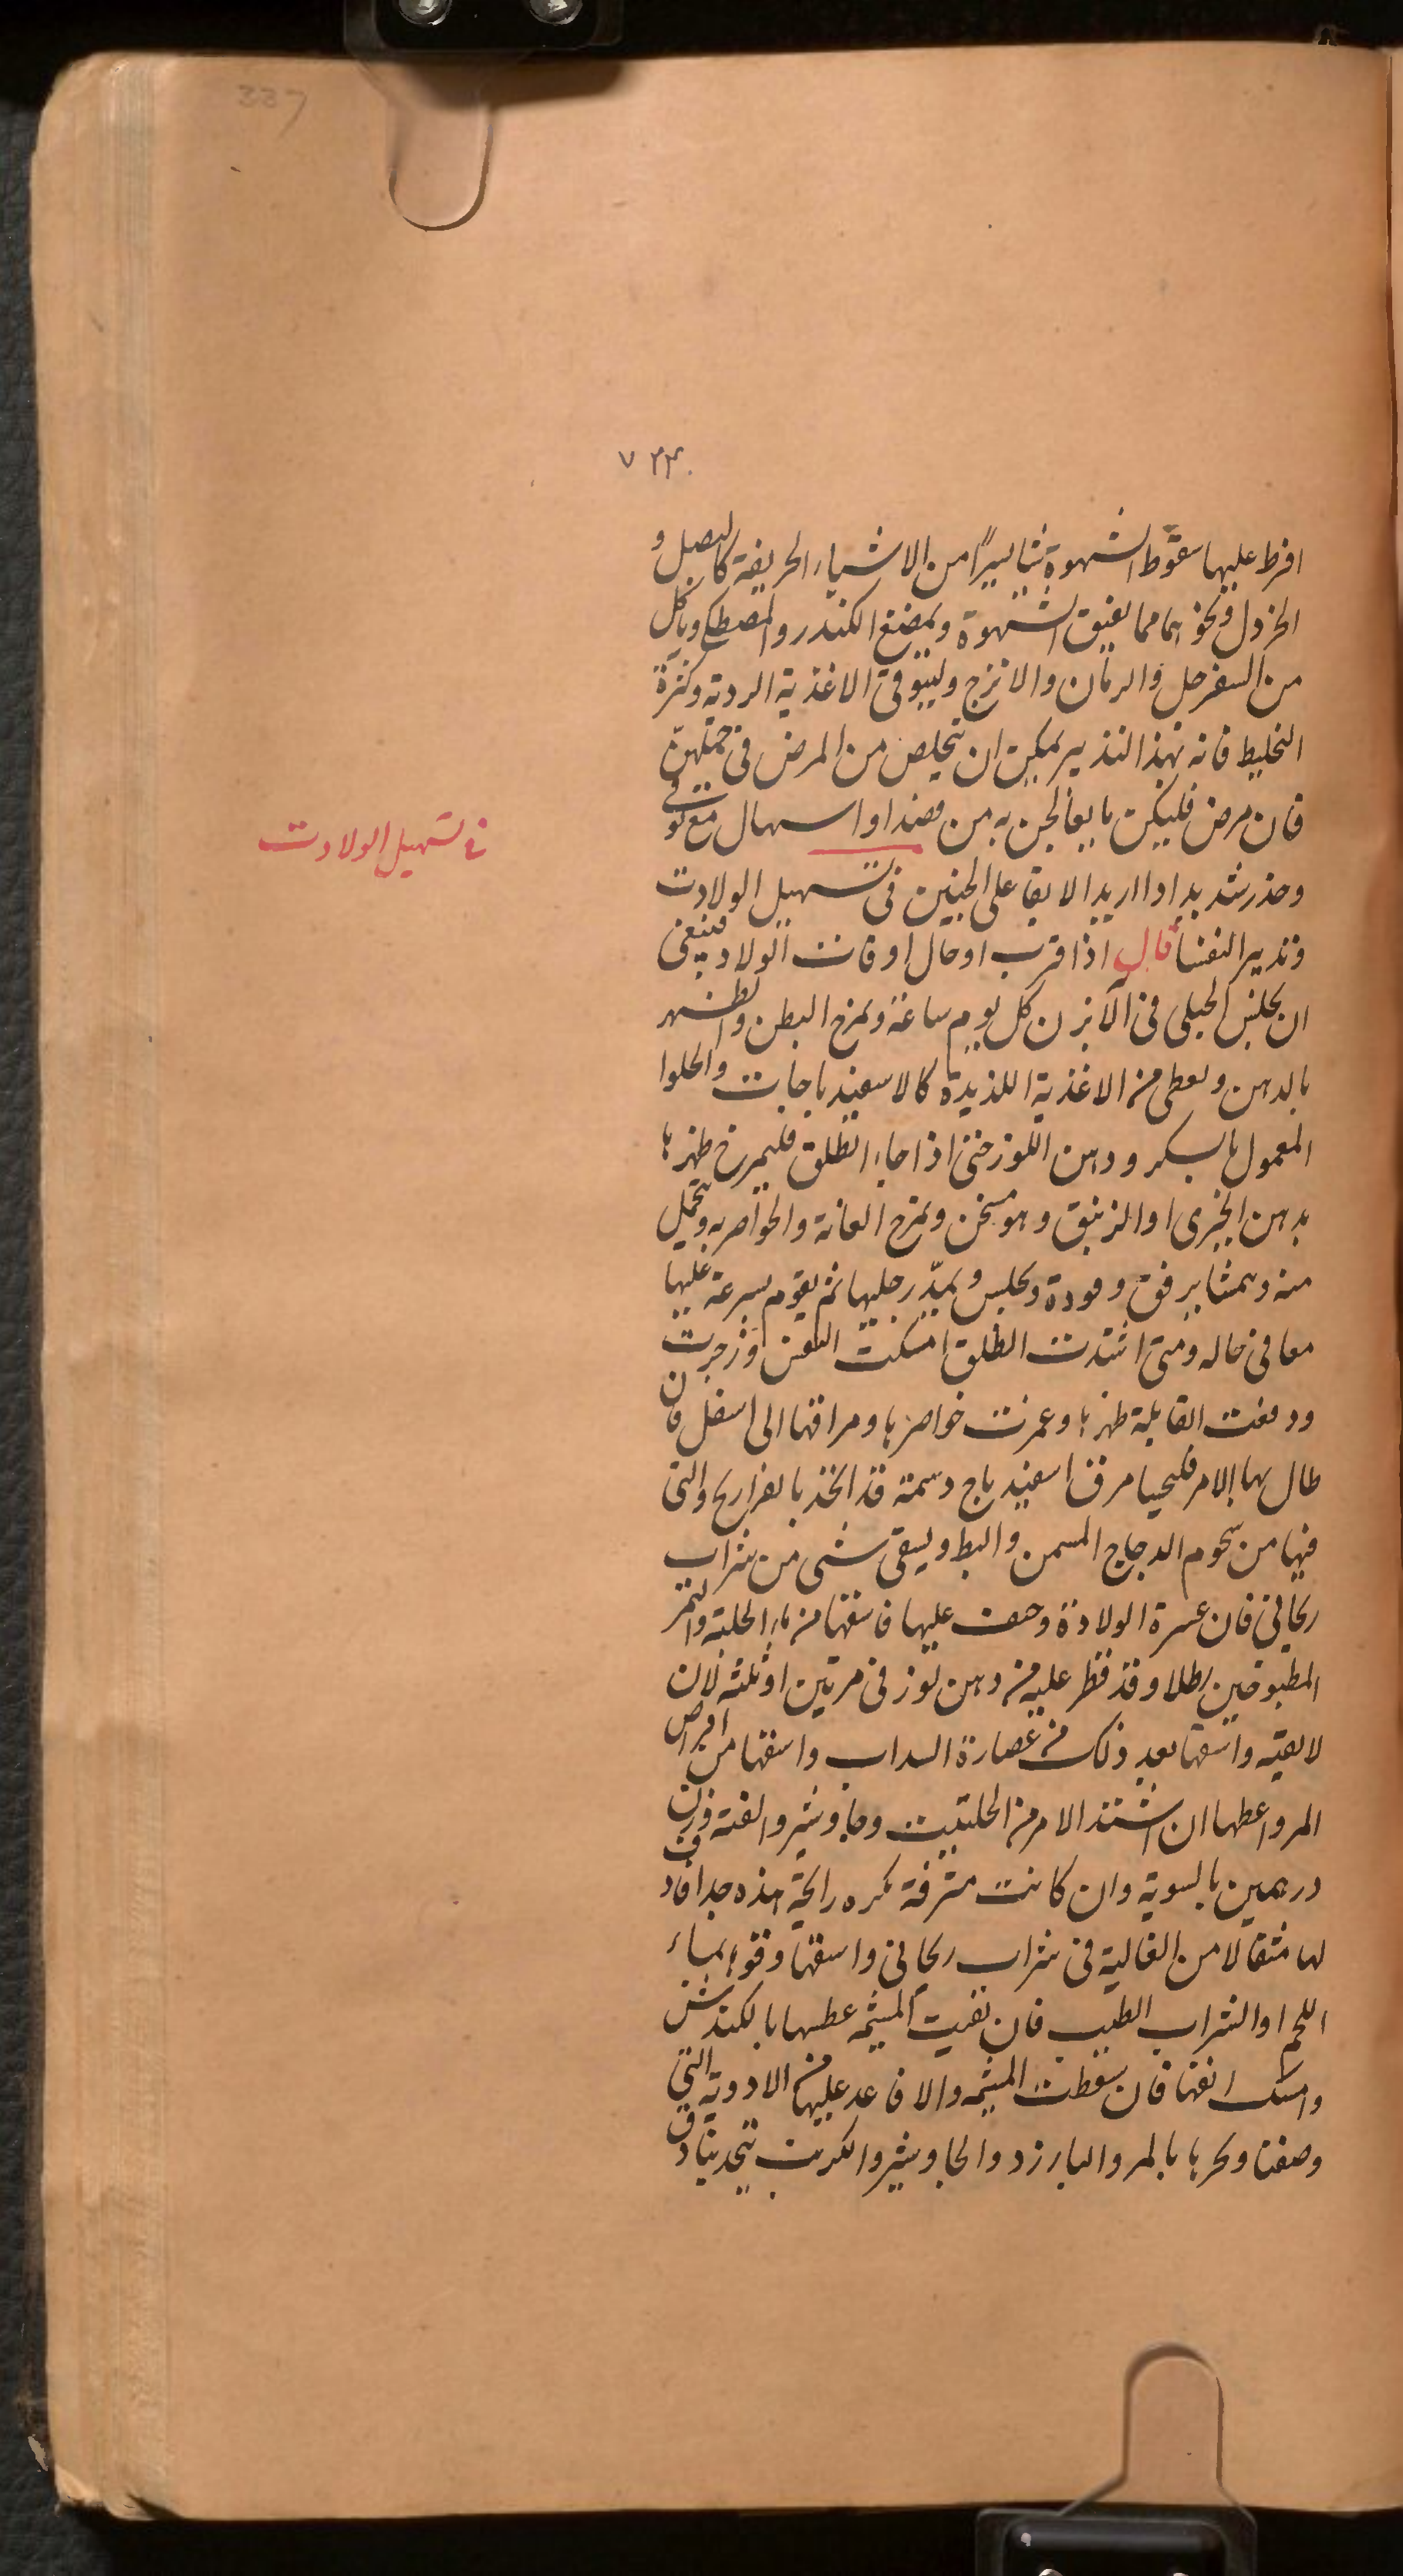 337
٧٢٣
افرط عليها سقوط الشهوة شيأ يسيرًا من الاشياء الحريفة كالبصل و
الخردل ونحوهما مما يفيق الشهوة ويمضغ الكندر والمصطكى وياكل
من السفرجل والرمان والاترج وليتوقى الاغذية الردية وكثرة
التخليط فانه بهذا التدبير يمكن ان يتخلص من المرض في حملهنّ
فان مرض فليكن ما يعالجن به من فصد او اسهال مع توقى
في تسهيل الولادت
وحذر شديد اذا اريد الابقا على الجنين في تسهيل الولادت
وتدبير النفسا قال اذا قرب اوحال اوقات الولاد فينبغي
ان يجلس الحبلى في الآبزن كل يوم ساعة ويمرخ البطن والظهر
بالدهن ويعطى من الاغذية اللذيذة كالاسفيدباجات والحلوا
المعمول بالسكر ودهن اللوز حتى اذا جاء الطلق فليمرخ ظهرها
بدهن الخيرى او الزنبق وهو مسخن ويمرخ العانة والخواصر به ويتحمل
منه وتمشا برفق وهودة وتجلس ويمدّ رجليها ثم يقوم بسرعة عليها
معا في حاله ومتى اشتدت الطلق امسكت النفس وزجرت
ودفعت القابلة ظهرها وغمزت خواصرها ومراقها الى اسفل فان
طال بها الامر فليحسا مرق اسفيدباج دسمة قد اتخذ بالفراريج والتى
فيها من شحوم الدجاج المسمن والبط ويسقى شى من شراب
ريحاني فان عسرة الولادة وصعب عليها فاسقها من ماء الحلبة والتمر
المطبوخين رطلا وقد قطر عليه من دهن لوز في مرتين او ثلثه لان
لا تقيه واسقها بعد ذلك من عصارة السداب واسقها من اقراص
المر واعطها ان اشتد الامر من الحلتيت وجاوشير والقنه وزن
درهمين بالسوية وان كانت مترفة تكره رائحة هذه جدا فدف
لها مثقالا من الغالية في شراب ريحاني واسقها وقوها بماء
اللحم او الشراب الطيب فان بقيت المشيمه عطسها بالكندش
وامسك انفها فان سقطت المشيمه والا فاعد عليها من الادوية التي
وصفنا وبخرها بالمر والبارزد والجاوشير والكبريت يتخد بنادق